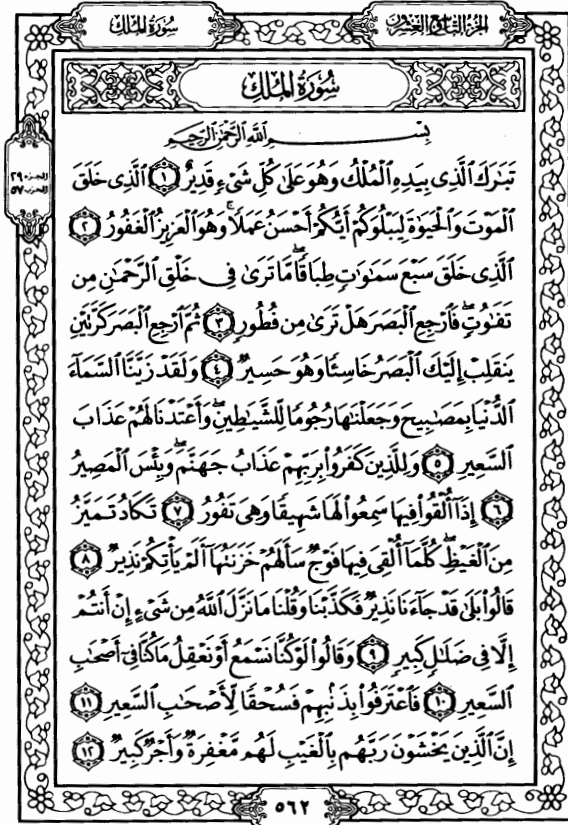 الجزء التاسع والعشرون
سُورَةُ المُلْكِ
سُورَةُ المُلْكِ
الجزء ٢٩
الحزب ٥٧
بِسْمِ اللَّهِ الرَّحْمَٰنِ الرَّحِيمِ
تَبَٰرَكَ ٱلَّذِى بِيَدِهِ ٱلْمُلْكُ وَهُوَ عَلَىٰ كُلِّ شَىْءٍ قَدِيرٌ ١ ٱلَّذِى خَلَقَ
ٱلْمَوْتَ وَٱلْحَيَوٰةَ لِيَبْلُوَكُمْ أَيُّكُمْ أَحْسَنُ عَمَلًا ۚ وَهُوَ ٱلْعَزِيزُ ٱلْغَفُورُ ٢
ٱلَّذِى خَلَقَ سَبْعَ سَمَٰوَٰتٍ طِبَاقًا ۖ مَّا تَرَىٰ فِى خَلْقِ ٱلرَّحْمَٰنِ مِن
تَفَٰوُتٍ ۖ فَٱرْجِعِ ٱلْبَصَرَ هَلْ تَرَىٰ مِن فُطُورٍ ٣ ثُمَّ ٱرْجِعِ ٱلْبَصَرَ كَرَّتَيْنِ
يَنقَلِبْ إِلَيْكَ ٱلْبَصَرُ خَاسِئًا وَهُوَ حَسِيرٌ ٤ وَلَقَدْ زَيَّنَّا ٱلسَّمَآءَ
ٱلدُّنْيَا بِمَصَٰبِيحَ وَجَعَلْنَٰهَا رُجُومًا لِّلشَّيَٰطِينِ ۖ وَأَعْتَدْنَا لَهُمْ عَذَابَ
ٱلسَّعِيرِ ٥ وَلِلَّذِينَ كَفَرُوا۟ بِرَبِّهِمْ عَذَابُ جَهَنَّمَ ۖ وَبِئْسَ ٱلْمَصِيرُ
٦ إِذَآ أُلْقُوا۟ فِيهَا سَمِعُوا۟ لَهَا شَهِيقًا وَهِىَ تَفُورُ ٧ تَكَادُ تَمَيَّزُ
مِنَ ٱلْغَيْظِ ۖ كُلَّمَآ أُلْقِىَ فِيهَا فَوْجٌ سَأَلَهُمْ خَزَنَتُهَآ أَلَمْ يَأْتِكُمْ نَذِيرٌ ٨
قَالُوا۟ بَلَىٰ قَدْ جَآءَنَا نَذِيرٌ فَكَذَّبْنَا وَقُلْنَا مَا نَزَّلَ ٱللَّهُ مِن شَىْءٍ إِنْ أَنتُمْ
إِلَّا فِى ضَلَٰلٍ كَبِيرٍ ٩ وَقَالُوا۟ لَوْ كُنَّا نَسْمَعُ أَوْ نَعْقِلُ مَا كُنَّا فِىٓ أَصْحَٰبِ
ٱلسَّعِيرِ ١٠ فَٱعْتَرَفُوا۟ بِذَنۢبِهِمْ فَسُحْقًا لِّأَصْحَٰبِ ٱلسَّعِيرِ ١١
إِنَّ ٱلَّذِينَ يَخْشَوْنَ رَبَّهُم بِٱلْغَيْبِ لَهُم مَّغْفِرَةٌ وَأَجْرٌ كَبِيرٌ ١٢
٥٦٢